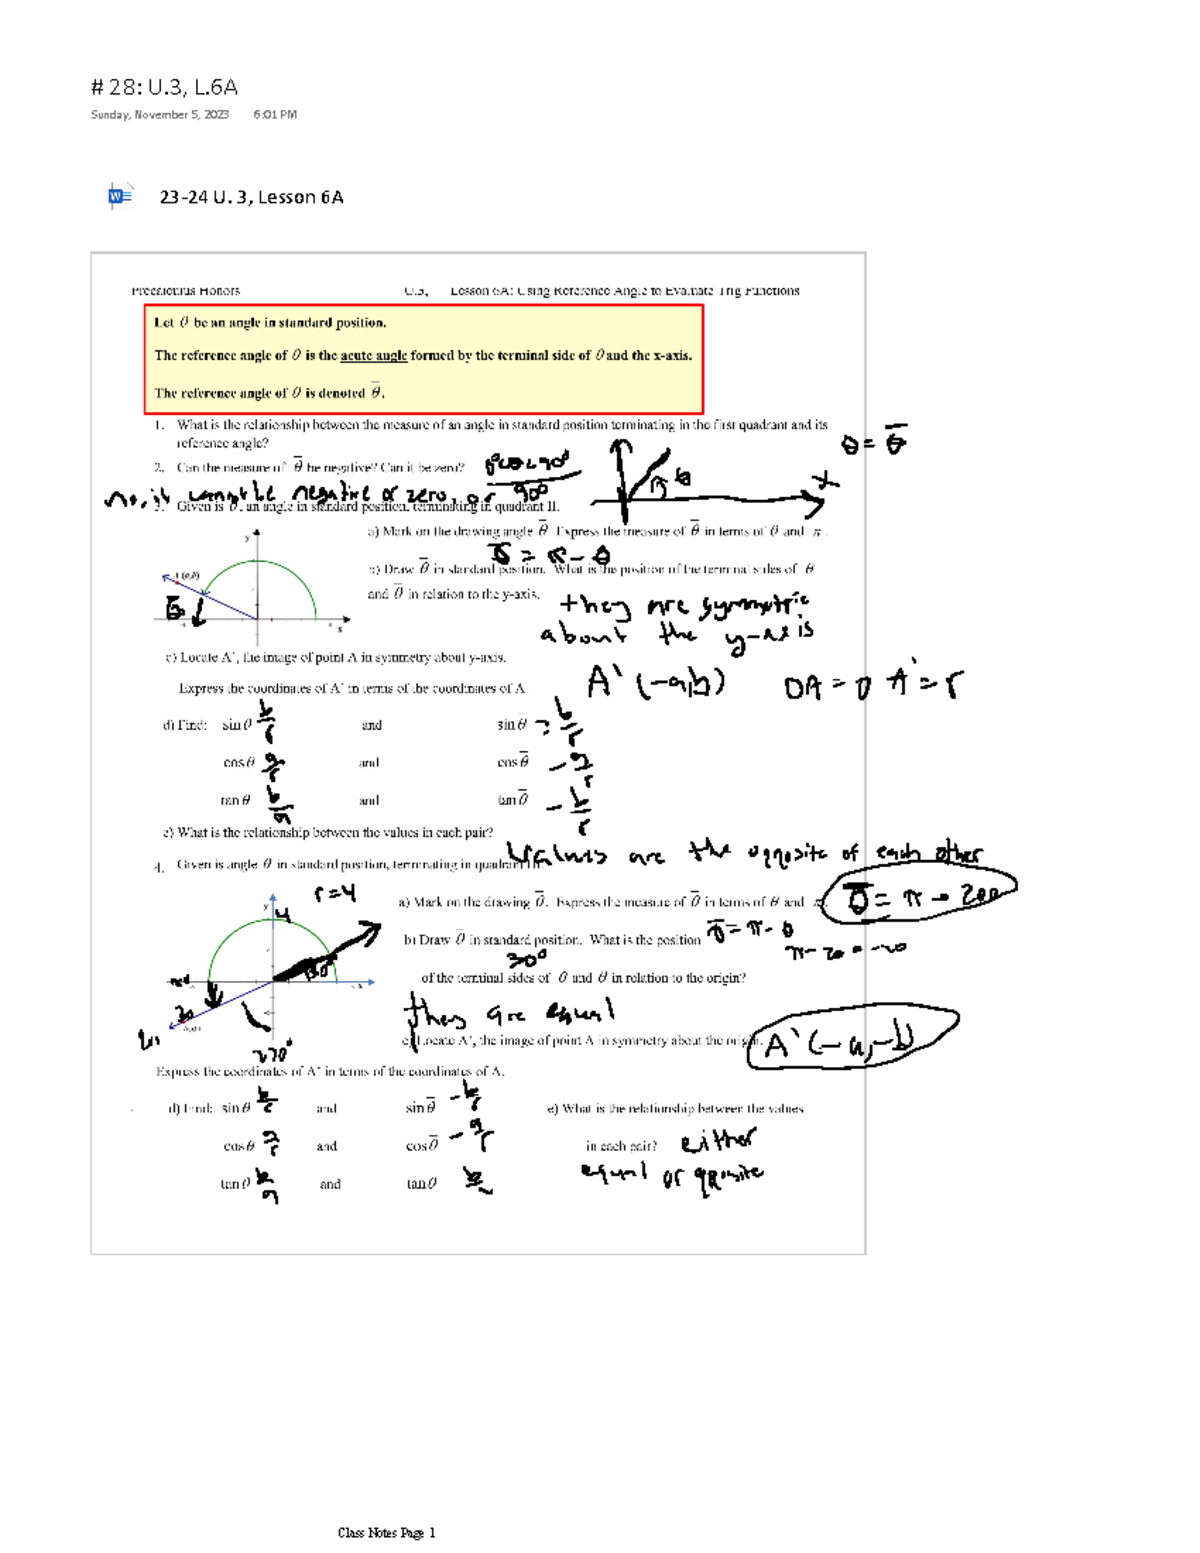 # 28: U.3, L.6A
Sunday, November 5, 2023 6:01 PM
23-24 U. 3, Lesson 6A
Precalculus Honors U.3, Lesson 6A: Using Reference Angle to Evaluate Trig Functions
Let θ be an angle in standard position.
The reference angle of θ is the acute angle formed by the terminal side of θ and the x-axis.
The reference angle of θ is denoted θ̅.
1. What is the relationship between the measure of an angle in standard position terminating in the first quadrant and its
reference angle?
θ = θ̅
2. Can the measure of θ̅ be negative? Can it be zero?
no, it cannot be negative or zero, or 90°
x
θ
3. Given is θ, an angle in standard position, terminating in quadrant II.
a) Mark on the drawing angle θ̅. Express the measure of θ̅ in terms of θ and π.
θ̅ = π - θ
y
A(a,b)
θ̅
x
b) Draw θ̅ in standard position. What is the position of the terminal sides of θ
and θ̅ in relation to the y-axis.
they are symmetric
about the y-axis
c) Locate A', the image of point A in symmetry about y-axis.
Express the coordinates of A' in terms of the coordinates of A.
A' (-a,b) OA = O A' = r
d) Find: sin θ b/r and sin θ̅ = b/r
cos θ a/r and cos θ̅ - a/r
tan θ b/a and tan θ̅ - b/r
e) What is the relationship between the values in each pair?
Values are the opposite of each other
4. Given is angle θ in standard position, terminating in quadrant III.
r=4
y
4
30°
x
30
270°
a) Mark on the drawing θ̅. Express the measure of θ̅ in terms of θ and π.
θ̅ = π - 200
b) Draw θ̅ in standard position. What is the position
θ̅ = π - θ
π - 20 = -20
30°
of the terminal sides of θ and θ̅ in relation to the origin?
they are equal
c) Locate A', the image of point A in symmetry about the origin.
A' (-a,-b)
Express the coordinates of A' in terms of the coordinates of A.
d) Find: sin θ b/r and sin θ̅ - b/r
cos θ a/r and cos θ̅ - a/r
tan θ b/a and tan θ
e) What is the relationship between the values
in each pair? either
equal or opposite
Class Notes Page 1